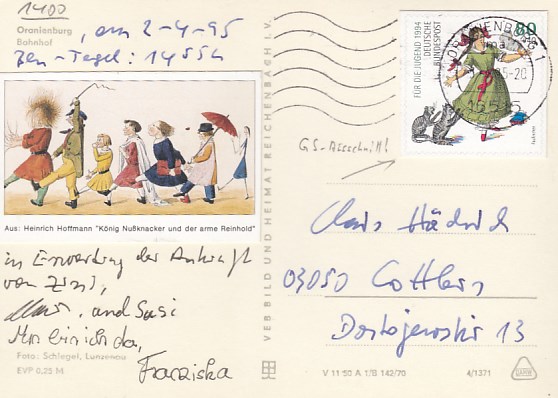 1400
Oranienburg
Bahnhof
, am 2-4-95
Ben-Tegel: 1455h
Aus: Heinrich Hoffmann "König Nußknacker und der arme Reinhold"
in Erwartung der Ankunft
von Zissi,
und Susi
bin ich da,
Franziska
Foto: Schlegel, Lunzenau
EVP 0,25 M
VEB BILD UND HEIMAT REICHENBACH I. V.
FÜR DIE JUGEND 1994
DEUTSCHE
BUNDESPOST
80
ORANIENBURG 1
GS-Ausschnitt!
03050 Cottbus
Dostojewskistr 13
V 11 50 A 1/B 142/70
4/1371